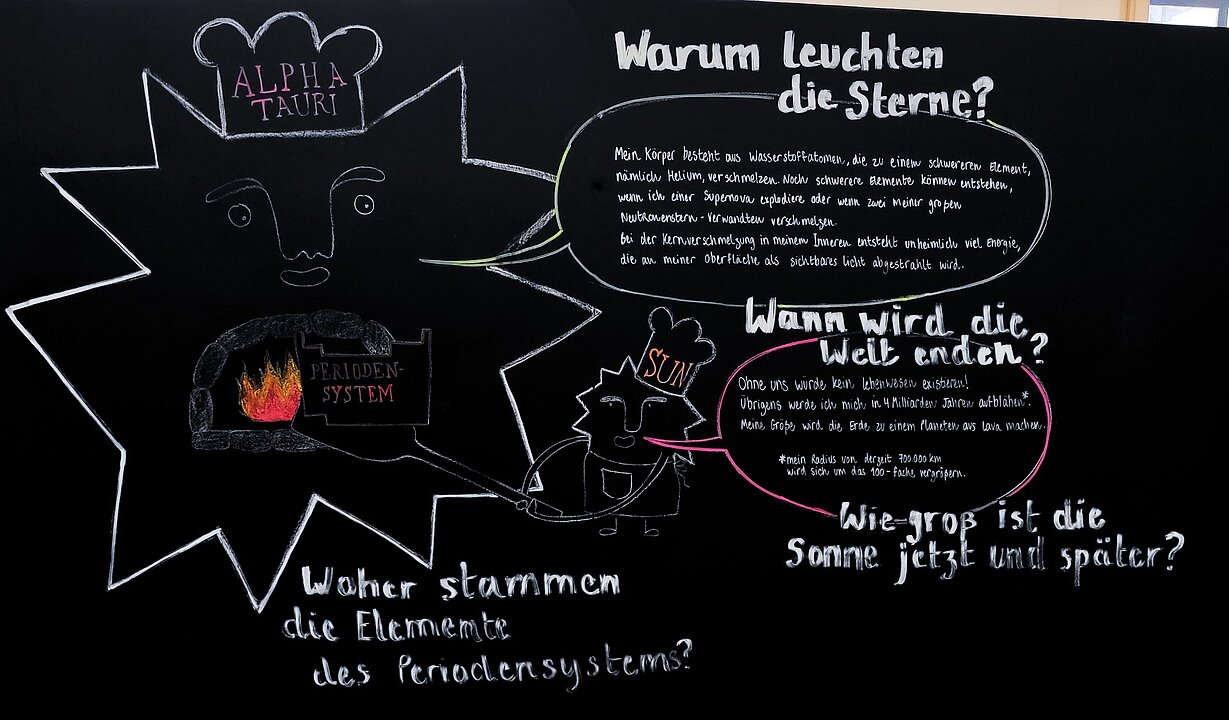 ALPHA
TAURI
Warum leuchten
die Sterne?
Mein Körper besteht aus Wasserstoffatomen, die zu einem schwereren Element,
nämlich Helium, verschmelzen. Noch schwerere Elemente können entstehen,
wenn ich einer Supernova explodiere oder wenn zwei meiner großen
Neutronenstern-Verwandten verschmelzen.
Bei der Kernverschmelzung in meinem Inneren entsteht unheimlich viel Energie,
die an meiner Oberfläche als sichtbares Licht abgestrahlt wird.
PERIODEN-
SYSTEM
SUN
Wann wird die
Welt enden?
Ohne uns würde kein Lebewesen existieren!
Übrigens werde ich mich in 4 Milliarden Jahren aufblähen*.
Meine Größe wird die Erde zu einem Planeten aus Lava machen.
*mein Radius von derzeit 700.000 km
wird sich um das 100-fache vergrößern.
Wie groß ist die
Sonne jetzt und später?
Woher stammen
die Elemente
des Periodensystems?